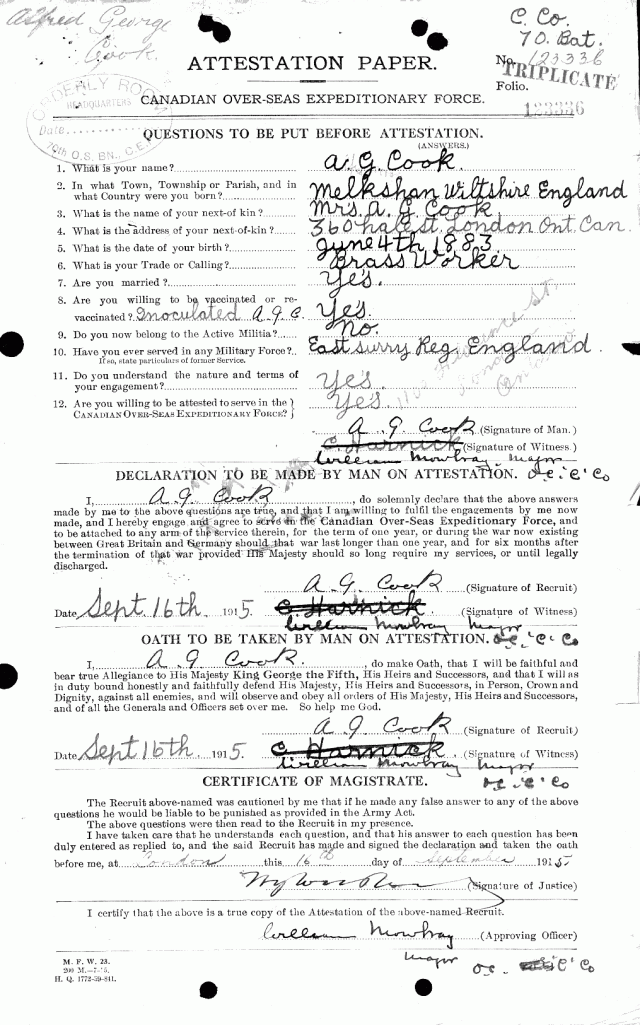 Alfred George
Cook
C. Co.
70. Bat.
No. 123336
TRIPLICATE
Folio.
123336
ATTESTATION PAPER.
CANADIAN OVER-SEAS EXPEDITIONARY FORCE.
ORDERLY ROOM
HEADQUARTERS
Date
70th O.S. BN., C.E.F.
QUESTIONS TO BE PUT BEFORE ATTESTATION.
(ANSWERS.)
1. What is your name? A. G. Cook.
2. In what Town, Township or Parish, and in
what Country were you born? Melkshan Wiltshire England
3. What is the name of your next-of kin? Mrs. A. G. Cook
4. What is the address of your next-of-kin? 360 St. London Ont. Can.
5. What is the date of your birth? June 4th 1883.
6. What is your Trade or Calling? Brass Worker
7. Are you married? Yes.
8. Are you willing to be vaccinated or re-
vaccinated? Inoculated A. G. C. Yes.
9. Do you now belong to the Active Militia? No.
10. Have you ever served in any Military Force? East surry Reg. England.
If so, state particulars of former Service.
11. Do you understand the nature and terms of
your engagement? Yes.
12. Are you willing to be attested to serve in the
CANADIAN OVER-SEAS EXPEDITIONARY FORCE? Yes.
St.
London
Ontario
A. G. Cook (Signature of Man.)
C. Harnick (Signature of Witness)
William Mowbray. Major
O.C. 'C' Co
DECLARATION TO BE MADE BY MAN ON ATTESTATION.
I, A G Cook, do solemnly declare that the above answers
made by me to the above questions are true, and that I am willing to fulfil the engagements by me now
made, and I hereby engage and agree to serve in the Canadian Over-Seas Expeditionary Force, and
to be attached to any arm of the service therein, for the term of one year, or during the war now existing
between Great Britain and Germany should that war last longer than one year, and for six months after
the termination of that war provided His Majesty should so long require my services, or until legally
discharged.
A. G Cook (Signature of Recruit)
Date Sept. 16th 1915. C. Harnick (Signature of Witness)
William Mowbray Major
O.C. 'C' Co
OATH TO BE TAKEN BY MAN ON ATTESTATION.
I, A G Cook., do make Oath, that I will be faithful and
bear true Allegiance to His Majesty King George the Fifth, His Heirs and Successors, and that I will as
in duty bound honestly and faithfully defend His Majesty, His Heirs and Successors, in Person, Crown and
Dignity, against all enemies, and will observe and obey all orders of His Majesty, His Heirs and Successors,
and of all the Generals and Officers set over me. So help me God.
A. G Cook (Signature of Recruit)
Date Sept 16th 1915. C Harnick. (Signature of Witness)
William Mowbray Major
O.C. 'C' Co
CERTIFICATE OF MAGISTRATE.
The Recruit above-named was cautioned by me that if he made any false answer to any of the above
questions he would be liable to be punished as provided in the Army Act.
The above questions were then read to the Recruit in my presence.
I have taken care that he understands each question, and that his answer to each question has been
duly entered as replied to, and the said Recruit has made and signed the declaration and taken the oath
before me, at London this 16th day of September 1915.
(Signature of Justice)
I certify that the above is a true copy of the Attestation of the above-named Recruit.
William Mowbray (Approving Officer)
Major O.C. 'C' Co
M. F. W. 23.
200 M.—7-'15.
H. Q. 1772-39-841.